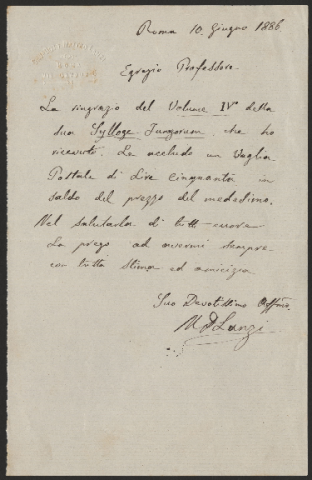 Roma 10. Giugno 1886.
Egregio Professore.
La ringrazio del Volume IV° della
sua Sylloge Fungorum, che ho
ricevuto. Le accludo un Vaglia
Postale di Lire Cinquanta in
saldo del prezzo del medesimo.
Nel salutarla di tutt cuore
La prego ad avermi sempre
con tutta stima ed amicizia
Suo Devotissimo Affmo.
M Lanzi